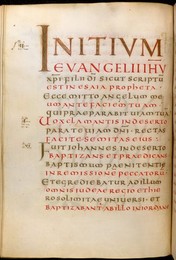 INITIUM
EVANGELII IHV
XPI FILII DI SICUT SCRIPTŪ
EST IN ESAIA PROPHETA
ECCE MITTO ANGELUM ME
UM ANTE FACIEM TUAM
QUI PRAEPARABIT UIAM TUĀ
UOX CLAMANTIS IN DESERTO
PARATE UIAM DNI RECTAS
FACITE SEMITAS EIUS
FUIT IOHANNES IN DESERTO
BAPTIZANS ET PRAEDICANS
BAPTISMUM PAENITENTIAE
IN REMISSIONE PECCATORŪ
ET EGREDIEBATUR AD ILLUM
OMNIS IUDEAE REGIO ET HIE
ROSOLIMITAE UNIUERSI ET
BAPTIZABANTUR AB ILLO IN IORDANE